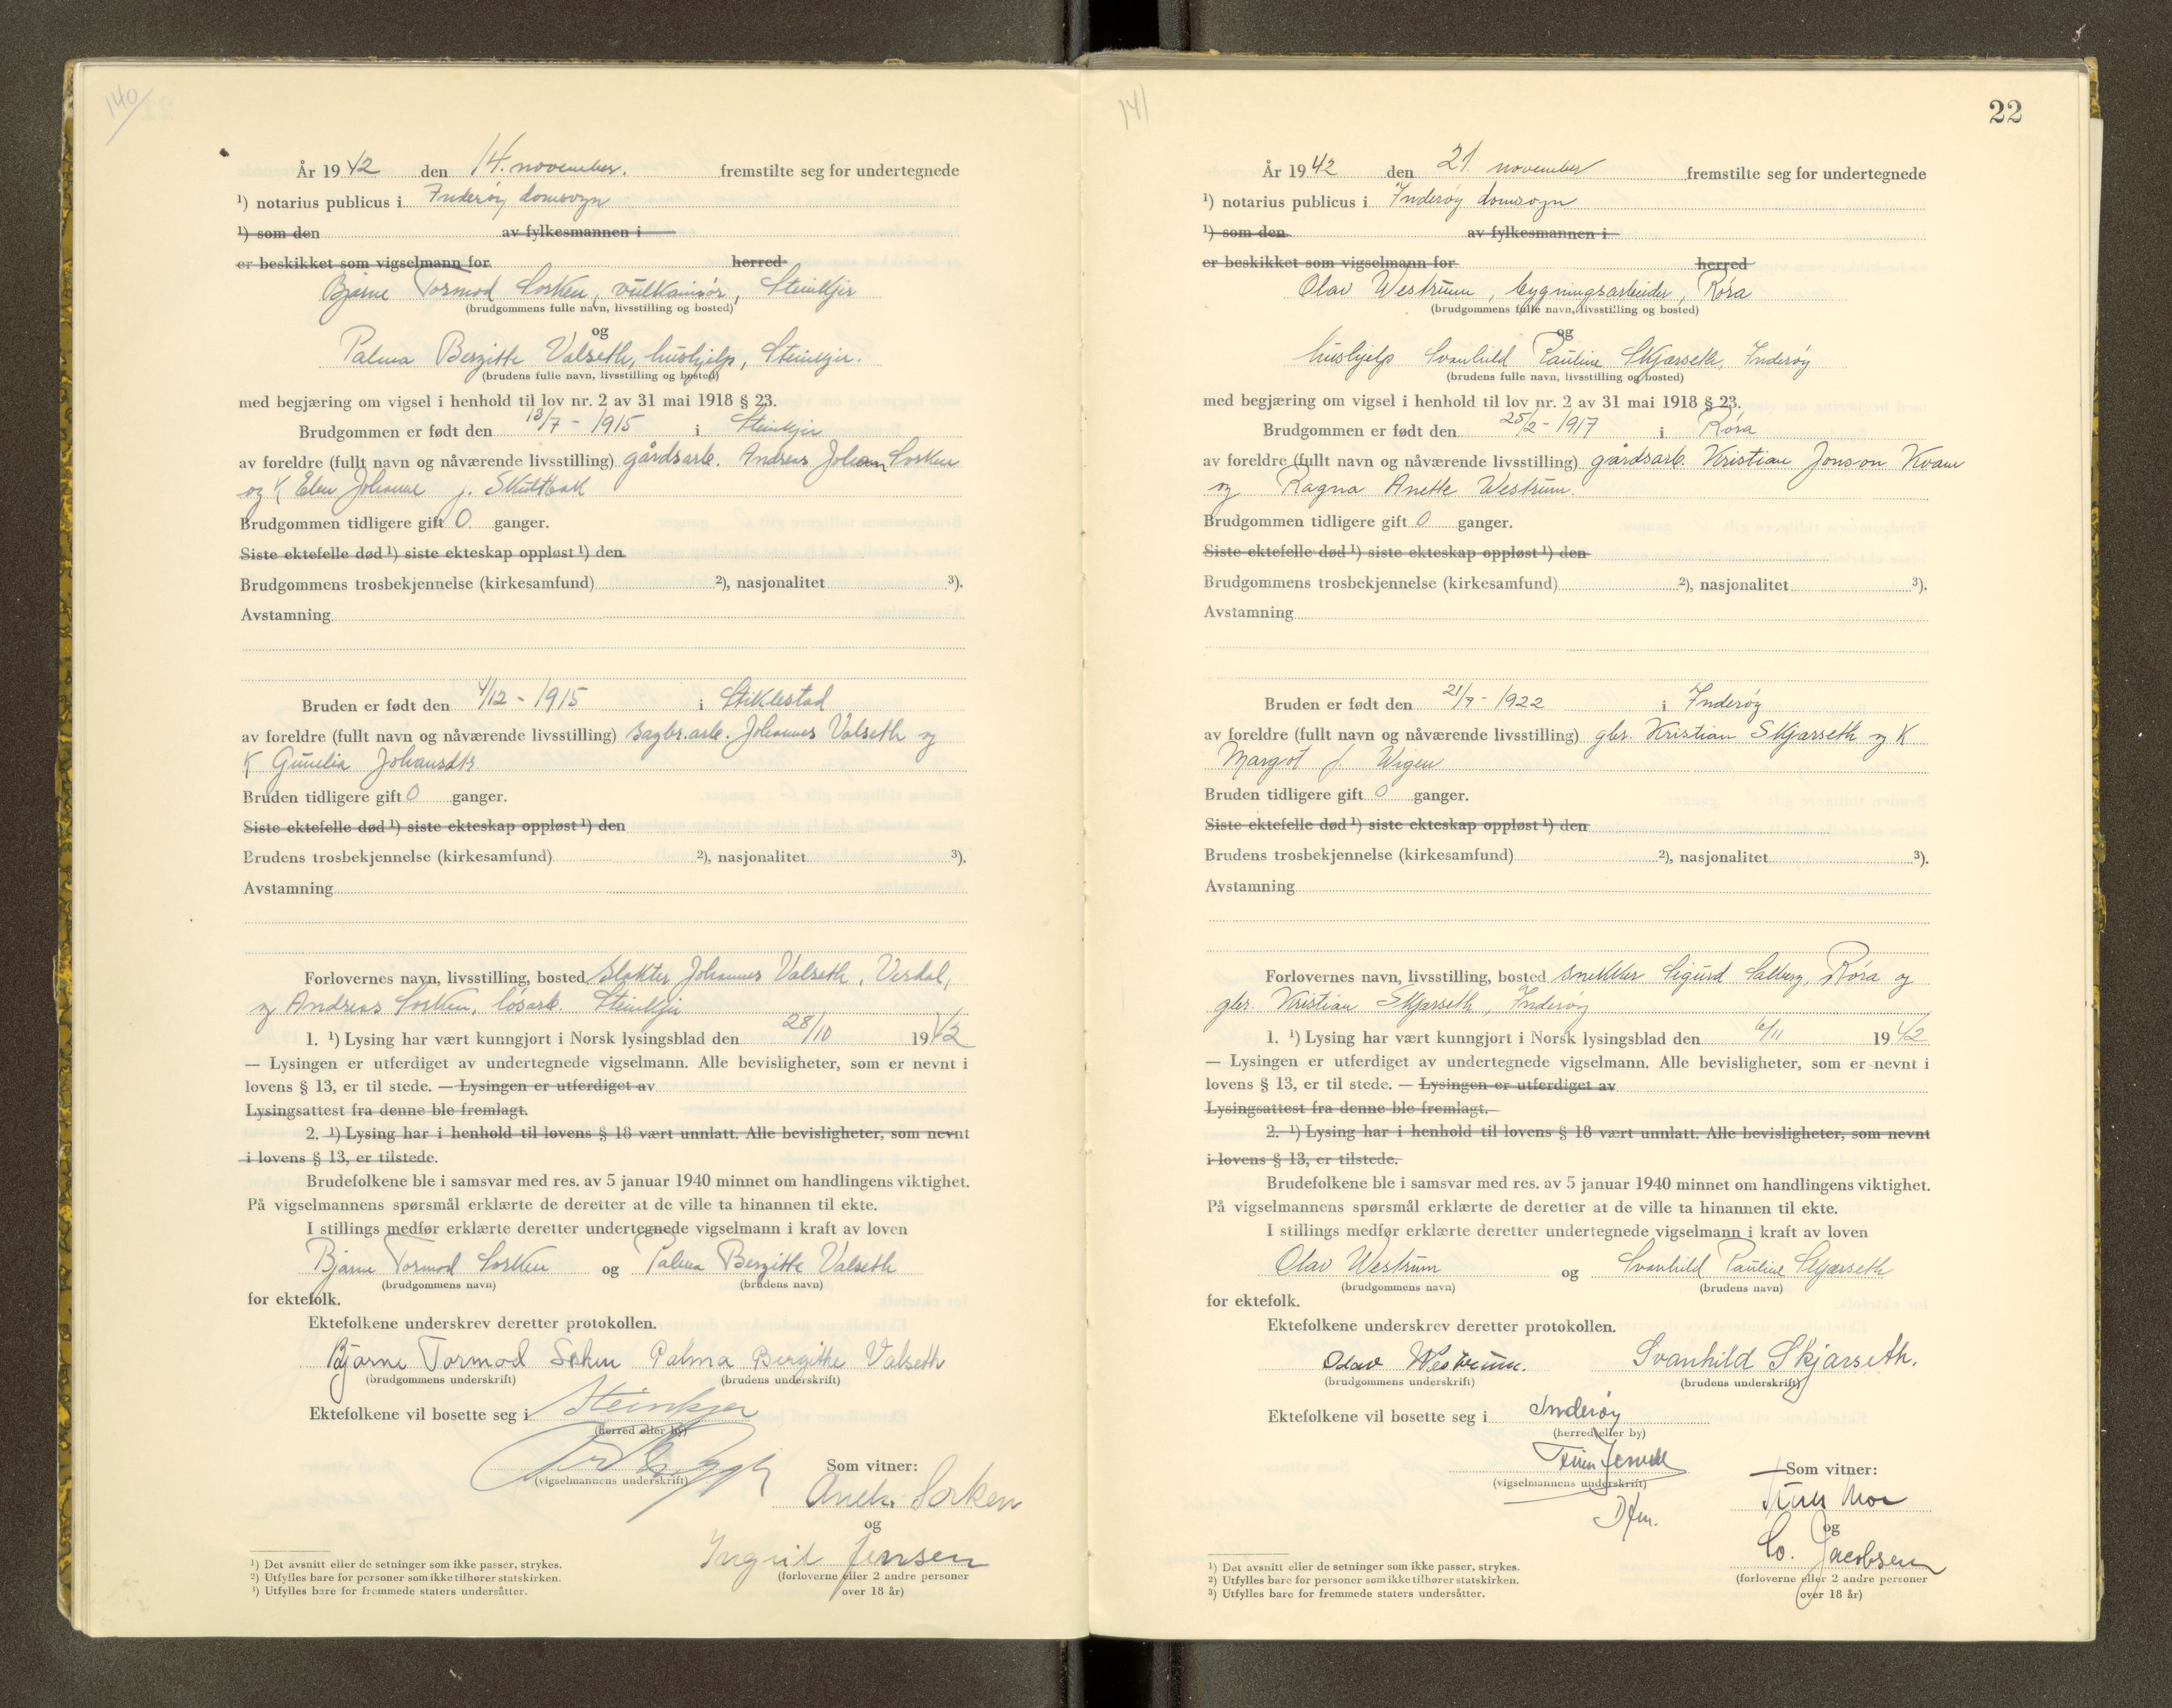 140
År 1942 den 14. november. fremstilte seg for undertegnede
¹) notarius publicus i Inderøy domsogn
¹) som den av fylkesmannen i
er beskikket som vigselmann for herred
Bjarne Tormod Sorken, vulkanisør, Steinkjer
(brudgommens fulle navn, livsstilling og bosted)
og
Palma Bergitte Valseth, hushjelp, Steinkjer.
(brudens fulle navn, livsstilling og bosted)
med begjæring om vigsel i henhold til lov nr. 2 av 31 mai 1918 § 23.
Brudgommen er født den 13/7 - 1915 i Steinkjer
av foreldre (fullt navn og nåværende livsstilling) gårdsarb. Andreas Johan Sorken
og K Elen Johanne f.
Brudgommen tidligere gift 0 ganger.
Siste ektefelle død ¹) siste ekteskap oppløst ¹) den
Brudgommens trosbekjennelse (kirkesamfund) ²), nasjonalitet ³).
Avstamning
Bruden er født den 4/12 - 1915 i Stiklestad
av foreldre (fullt navn og nåværende livsstilling) sagbr.arb. Johannes Valseth og
K Gunelia Johansdtr.
Bruden tidligere gift 0 ganger.
Siste ektefelle død ¹) siste ekteskap oppløst ¹) den
Brudens trosbekjennelse (kirkesamfund) ²), nasjonalitet ³).
Avstamning
Forlovernes navn, livsstilling, bosted slakter Johannes Valseth, Verdal,
og Andreas Sorken, løsarb. Steinkjer
1. ¹) Lysing har vært kunngjort i Norsk lysingsblad den 28/10 1942
— Lysingen er utferdiget av undertegnede vigselmann. Alle bevisligheter, som er nevnt i
lovens § 13, er til stede. — Lysingen er utferdiget av
Lysingsattest fra denne ble fremlagt.
2. ¹) Lysing har i henhold til lovens § 18 vært unnlatt. Alle bevisligheter, som nevnt
i lovens § 13, er tilstede.
Brudefolkene ble i samsvar med res. av 5 januar 1940 minnet om handlingens viktighet.
På vigselmannens spørsmål erklærte de deretter at de ville ta hinannen til ekte.
I stillings medfør erklærte deretter undertegnede vigselmann i kraft av loven
Bjarne Tormod Sorken og Palma Bergitte Valseth
(brudgommens navn) (brudens navn)
for ektefolk.
Ektefolkene underskrev deretter protokollen.
Bjarne Tormod Sorken Palma Bergitte Valseth
(brudgommens underskrift) (brudens underskrift)
Ektefolkene vil bosette seg i Steinkjer
(herred eller by)
(vigselmannens underskrift)
Som vitner:
Sorken
og
Ingrid Jensen
(forloverne eller 2 andre personer
over 18 år)
¹) Det avsnitt eller de setninger som ikke passer, strykes.
²) Utfylles bare for personer som ikke tilhører statskirken.
³) Utfylles bare for fremmede staters undersåtter.
141
22
År 1942 den 21. november fremstilte seg for undertegnede
¹) notarius publicus i Inderøy domsogn
¹) som den av fylkesmannen i
er beskikket som vigselmann for herred
Olav Westrum, bygningsarbeider, Røra
(brudgommens fulle navn, livsstilling og bosted)
og
hushjelp Svanhild Pauline Skjærseth, Inderøy
(brudens fulle navn, livsstilling og bosted)
med begjæring om vigsel i henhold til lov nr. 2 av 31 mai 1918 § 23.
Brudgommen er født den 25/2 - 1917 i Røra
av foreldre (fullt navn og nåværende livsstilling) gårdsarb. Kristian Jonson Kvam
og Ragna Anette Westrum.
Brudgommen tidligere gift 0 ganger.
Siste ektefelle død ¹) siste ekteskap oppløst ¹) den
Brudgommens trosbekjennelse (kirkesamfund) ²), nasjonalitet ³).
Avstamning
Bruden er født den 21/7 - 1922 i Inderøy
av foreldre (fullt navn og nåværende livsstilling) gbr. Kristian Skjærseth og K
Margot f. Wigen
Bruden tidligere gift 0 ganger.
Siste ektefelle død ¹) siste ekteskap oppløst ¹) den
Brudens trosbekjennelse (kirkesamfund) ²), nasjonalitet ³).
Avstamning
Forlovernes navn, livsstilling, bosted snekker Sigurd Salberg, Røra og
gbr. Kristian Skjærseth, Inderøy
1. ¹) Lysing har vært kunngjort i Norsk lysingsblad den 6/11 1942
— Lysingen er utferdiget av undertegnede vigselmann. Alle bevisligheter, som er nevnt i
lovens § 13, er til stede. — Lysingen er utferdiget av
Lysingsattest fra denne ble fremlagt.
2. ¹) Lysing har i henhold til lovens § 18 vært unnlatt. Alle bevisligheter, som nevnt
i lovens § 13, er tilstede.
Brudefolkene ble i samsvar med res. av 5 januar 1940 minnet om handlingens viktighet.
På vigselmannens spørsmål erklærte de deretter at de ville ta hinannen til ekte.
I stillings medfør erklærte deretter undertegnede vigselmann i kraft av loven
Olav Westrum og Svanhild Pauline Skjærseth
(brudgommens navn) (brudens navn)
for ektefolk.
Ektefolkene underskrev deretter protokollen.
Olav Westrum. Svanhild Skjærseth.
(brudgommens underskrift) (brudens underskrift)
Ektefolkene vil bosette seg i Inderøy
(herred eller by)
(vigselmannens underskrift)
Dfm.
Som vitner:
Moe
og
Co. Jacobsen
(forloverne eller 2 andre personer
over 18 år)
¹) Det avsnitt eller de setninger som ikke passer, strykes.
²) Utfylles bare for personer som ikke tilhører statskirken.
³) Utfylles bare for fremmede staters undersåtter.